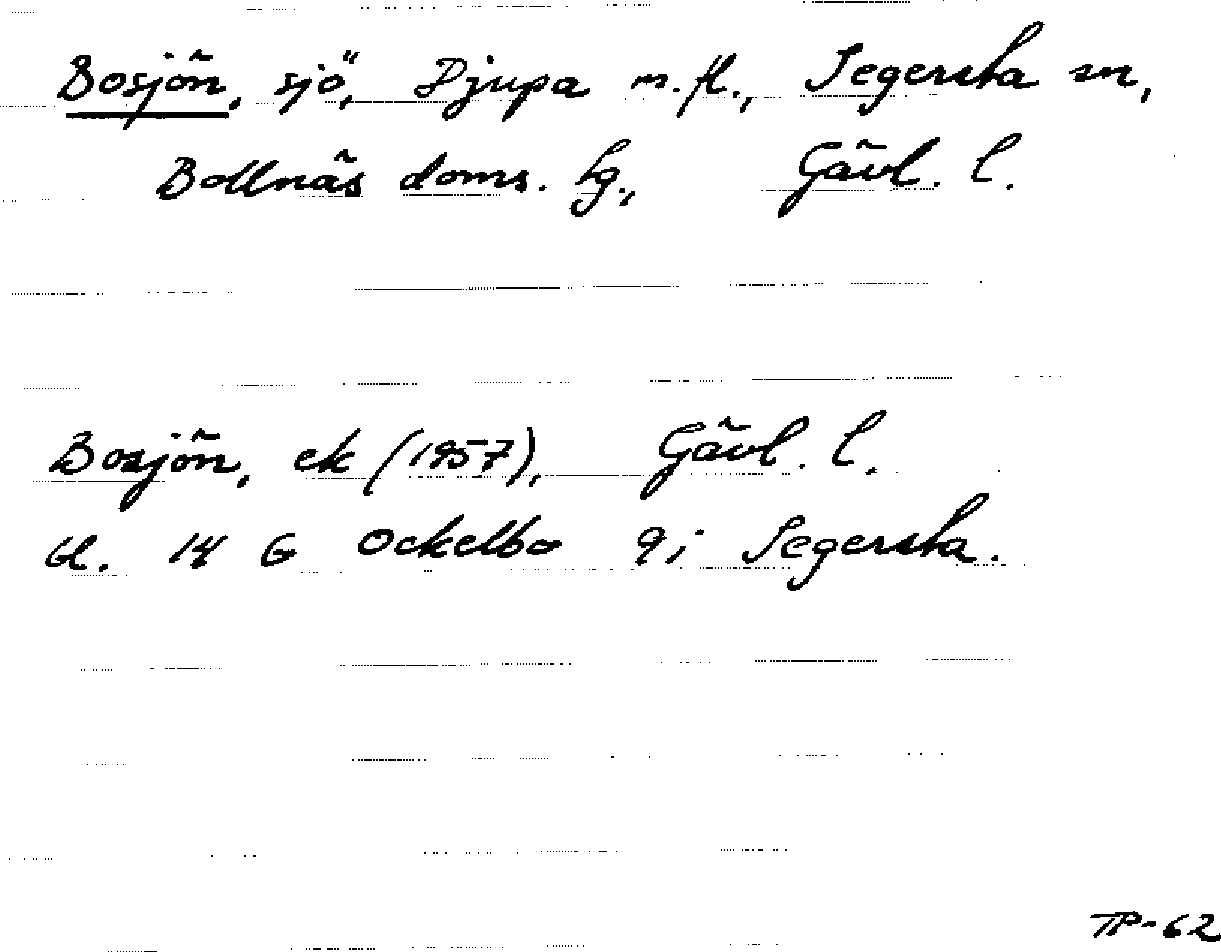 Bosjön, sjö, Djupa m.fl., Segersta sn,
Bollnäs doms. tg., Gävl. l.
Bosjön, ek (1957), Gävl. l.
bl. 14 G Ockelbo 9 i Segersta.
TP-62